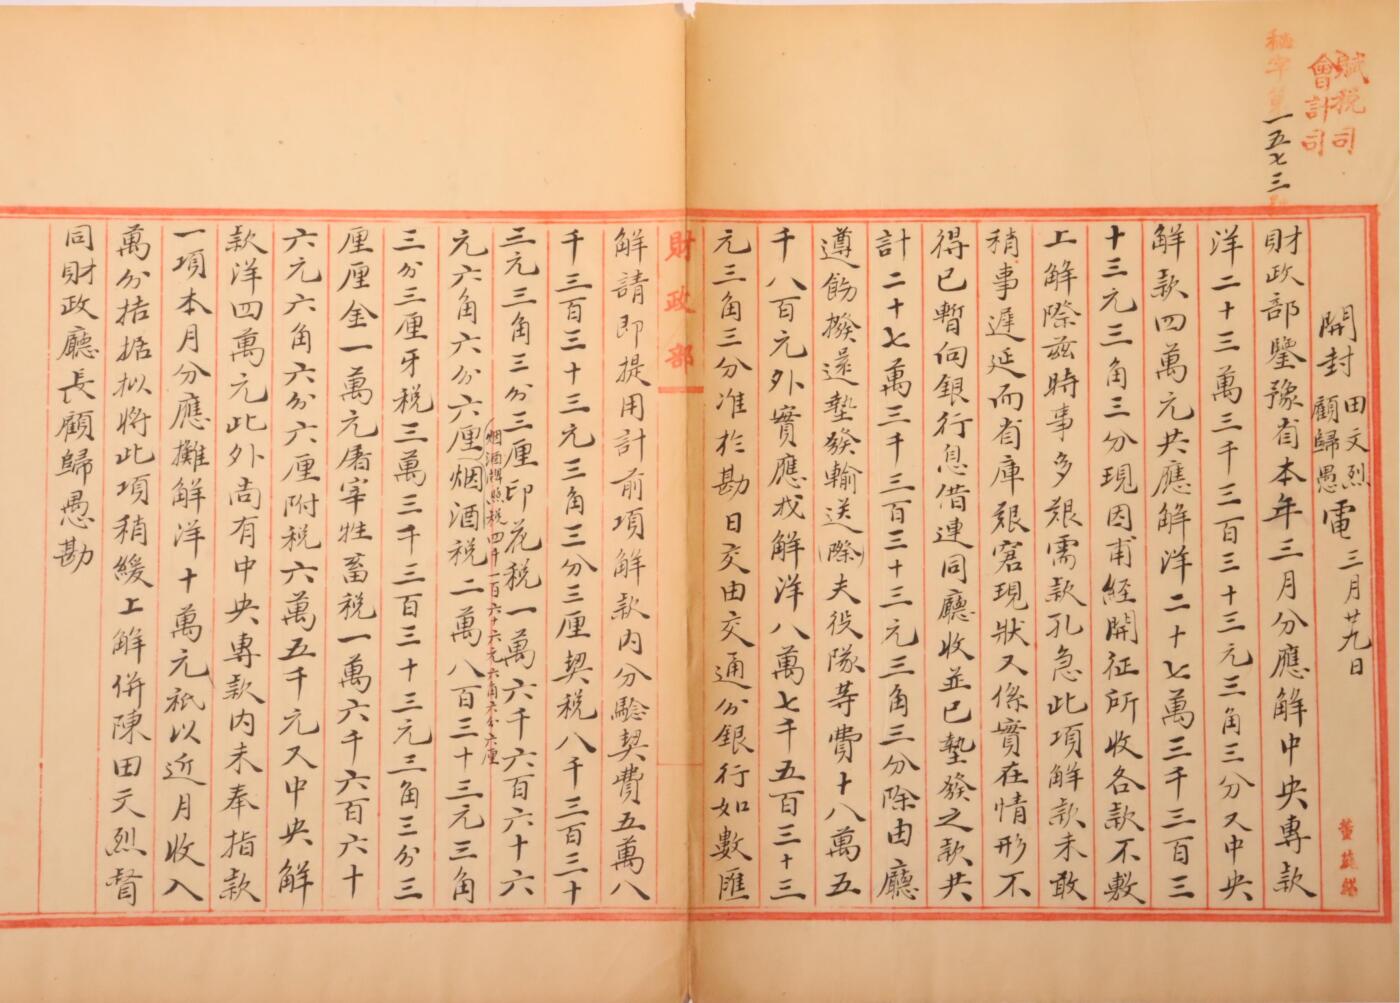 賦税司
會計司
秘字第一五七三號
開封田文烈顧歸愚電三月廿九日
財政部鑒豫省本年三月分應解中央專款
洋二十三萬三千三百三十三元三角三分又中央
解款四萬元共應解洋二十七萬三千三百三
十三元三角三分現因甫經開征所收各款不敷
上解際茲時事多艱需款孔急此項解款未敢
稍事遲延而省庫艱窘現狀又係實在情形不
得已暫向銀行息借連同廳收並已墊發之款共
計二十七萬三千三百三十三元三角三分除由廳
遵飭撥還墊發輸送(際)夫役隊等費十八萬五
千八百元外實應找解洋八萬七千五百三十三
元三角三分准於勘日交由交通分銀行如數匯
財政部
解請即提用計前項解款内分驗契費五萬八
千三百三十三元三角三分三厘契税八千三百三十
三元三角三分三厘印花税一萬六千六百六十六
元六角六分六厘烟酒税二萬八百三十三元三角
烟酒牌照税四千一百六十六元六角六分六厘
三分三厘牙税三萬三千三百三十三元三角三分三
厘厘金一萬元屠宰牲畜税一萬六千六百六十
六元六角六分六厘附税六萬五千元又中央解
款洋四萬元此外尚有中央專款内未奉指款
一項本月分應攤解洋十萬元祇以近月收入
萬分拮据拟將此項稍緩上解併陳田文烈督
同財政廳長顧歸愚勘